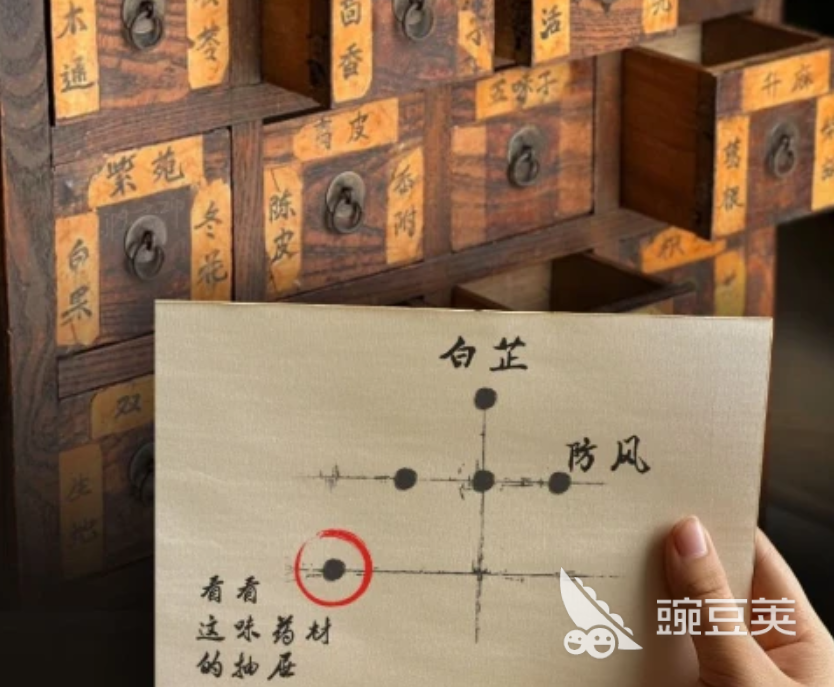 木通
茴香
活
升麻
五味子
青皮
葛根
紫苑
陈皮
香附
冬花
白果
双
生地
白芷
防风
看看
这味药材
的抽屉
豌豆荚